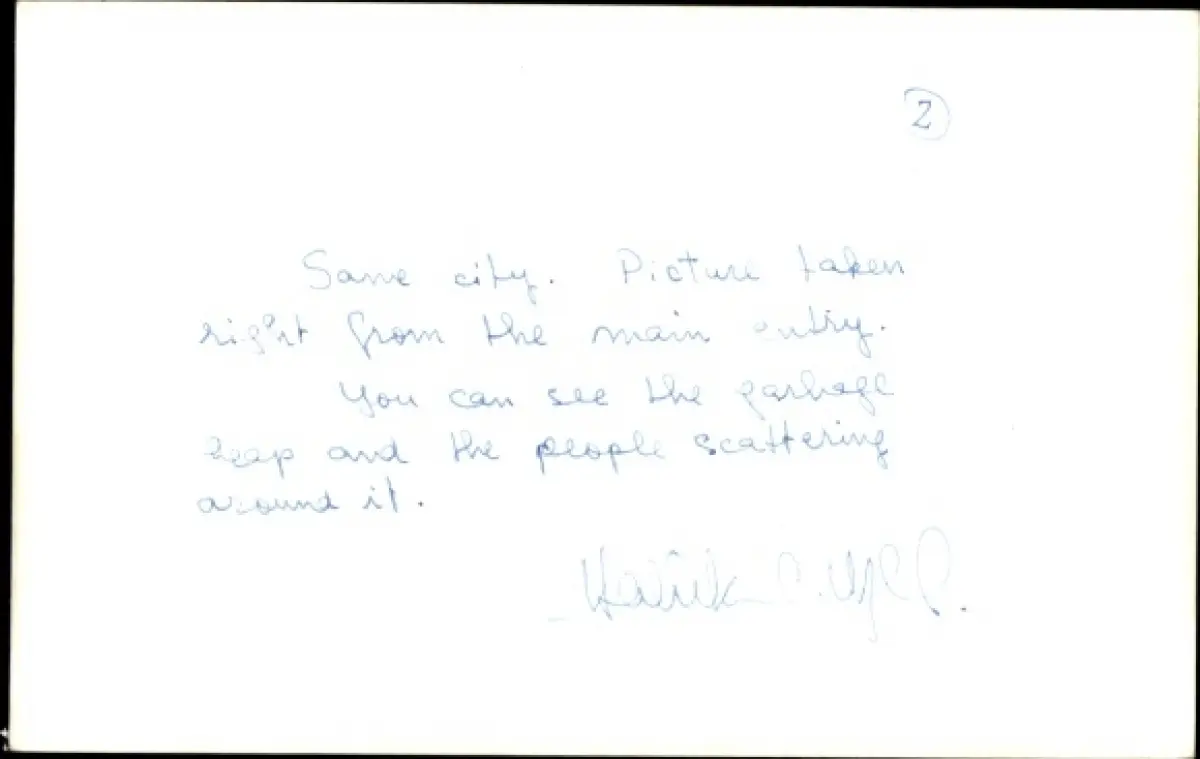 2
Same city. Picture taken
right from the main entry.
You can see the garbage
heap and the people scattering
around it.